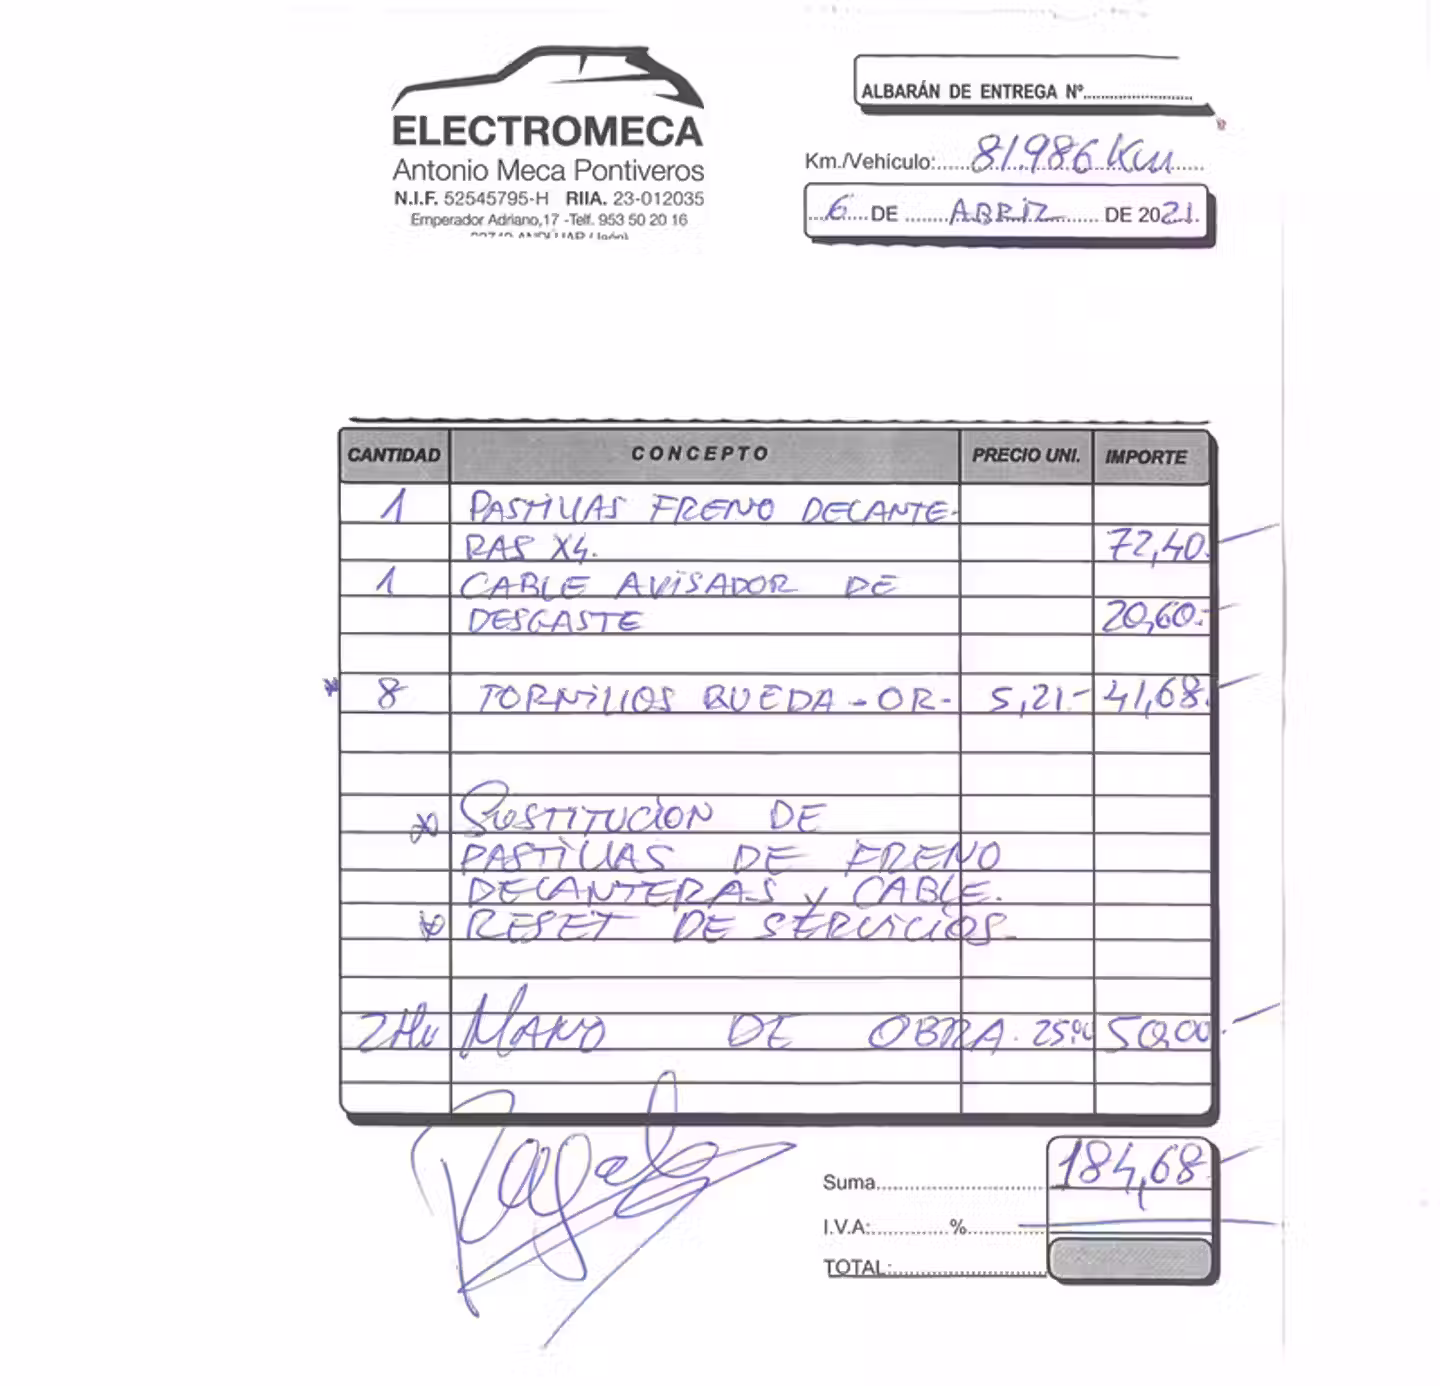 ELECTROMECA
Antonio Meca Pontiveros
N.I.F. 52545795-H RIIA. 23-012035
Emperador Adriano,17 -Telf. 953 50 20 16
ALBARÁN DE ENTREGA Nº
Km./Vehículo: 81986 Km
6 DE ABRIL DE 2021.
CANTIDAD CONCEPTO PRECIO UNI. IMPORTE
1 PASTILLAS FRENO DELANTE-
RAS X4. 72,40.-
1 CABLE AVISADOR DE
DESGASTE 20,60.-
* 8 TORNILLOS RUEDA - OR- 5,21.- 41,68.-
* SUSTITUCION DE
PASTILLAS DE FRENO
DELANTERAS y CABLE.
* RESET DE SERVICIOS.
2Hu MANO DE OBRA. 25,00 50,00.-
Suma 184,68.-
I.V.A: %
TOTAL: